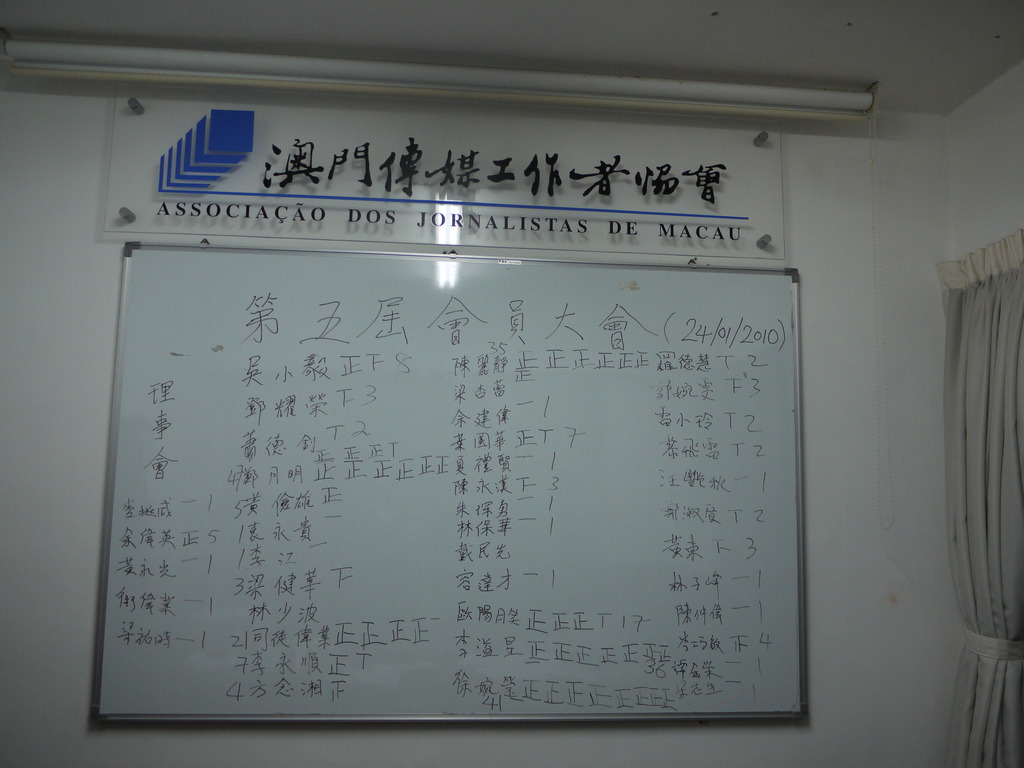 澳門傳媒工作者協會
ASSOCIAÇÃO DOS JORNALISTAS DE MACAU
第五屆會員大會(24/01/2010)
理事會
成 一 1
余偉英 正 5
黃永光 一 1
偉業 一 1
梁 一 1
吳小毅 正下 8
鄧耀榮 下 3
蕭德釗 丅 2
鄭月明 正正正丅正正正正正正
5 黃儉雄 正
1 袁永貴 一
1 李江 一
3 梁健華 下
林少波
21 司徒偉業 正正正正一
7 李永順 正丅
4 方念湘
陳麗靜 35 正正正正正正正
梁杏蘭
余建偉 一 1
葉國華 正丅 7
夏禮賢 一 1
陳永漢 下 3
朱保勇 一
林保華 一 1
戴民光
容達才 一 1
歐陽 正正正丅 17
李道星 正正正正正正正 36
徐婉瑩 正正正正正正正正 41
羅德慧 丅 2
郭婉雯 下 3
小玲 丅 2
蔡飛雲 丅 2
汪艷秋 一 1
鄭淑賢 丅 2
黃東 下 3
林子峰 一 1
陳仲偉 一 1
敏 4
譚金榮 一 1
梁志生 一 1